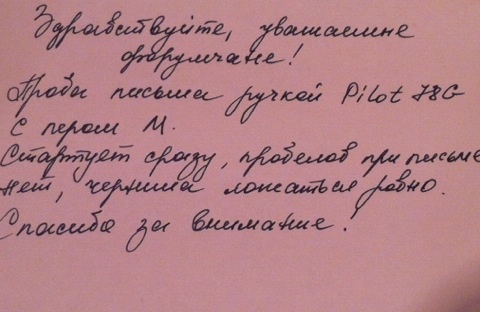 Здравствуйте, уважаемые
форумчане!
Проба письма ручкой Pilot 78G
с пером M.
Стартует сразу, пробелов при письме
нет, чернила ложаться ровно.
Спасибо за внимание!